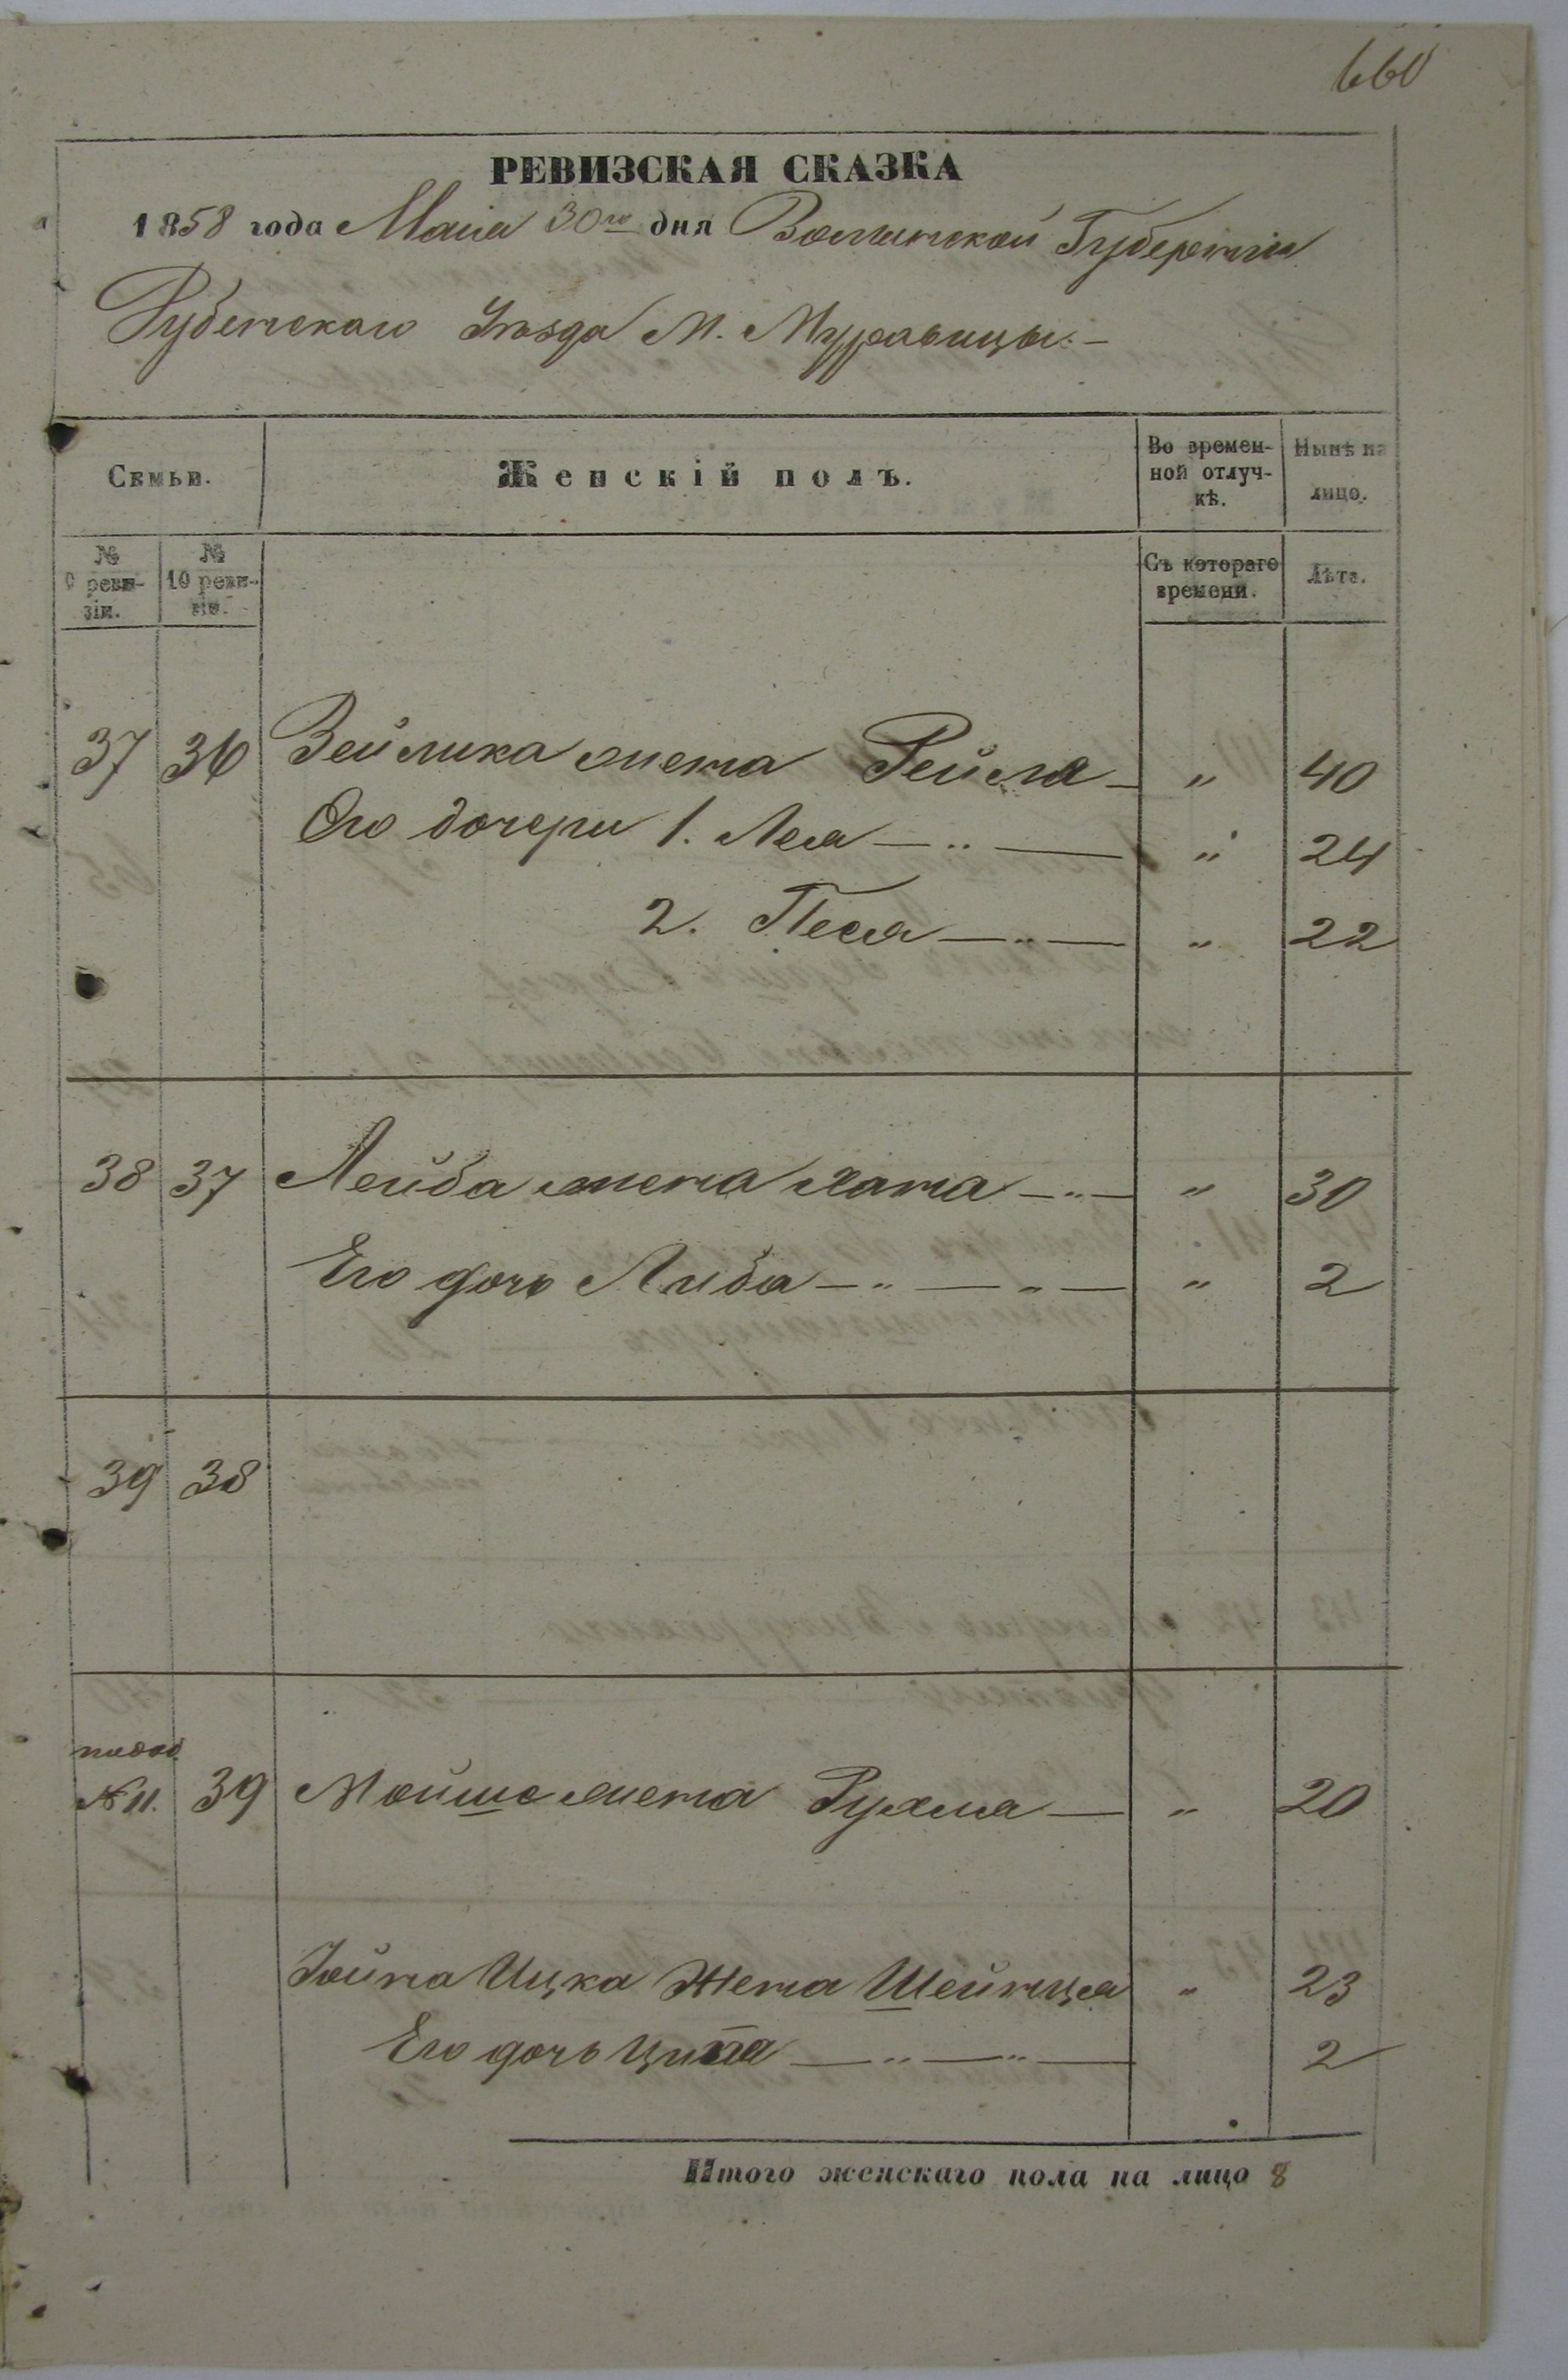 660
РЕВИЗСКАЯ СКАЗКА
1858 года Маія 30го дня Волынской Губерніи
Дубенскаго Уѣзда М. Муравицы. —
Семьи.
Женскій полъ.
Во времен-
ной отлуч-
кѣ.
Нынѣ на
лицо.
№
9 реви-
зіи.
№
10 реви-
зіи.
Съ котораго
времени.
Лѣта.
37 36 Зейлика жена Рейзля — „ 40
Его дочери 1. Лея — „ — „ 24
2. Песя — „ — „ 22
38 37 Лейба жена Хана — „ — „ 30
Его дочь Либа — „ — „ — „ 2
39 38
№ 11. 39 Мойше жена Рухля — „ 20
Іойна Ицка Жена Шейнця „ 23
Его дочь Ципа — „ — „ — 2
Итого женскаго пола на лицо 8